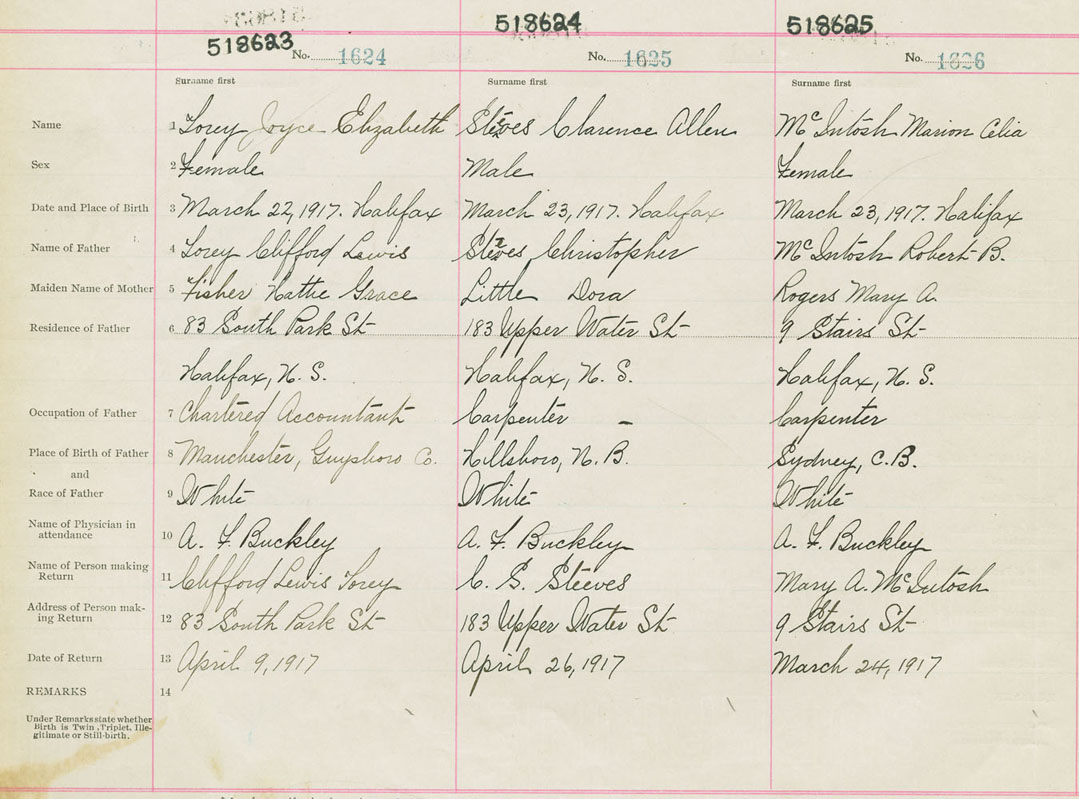 518623 518624 518625
No. 1624 No. 1625 No. 1626
Surname first Surname first Surname first
Name 1 Torey Joyce Elizabeth Steeves Clarence Allen McIntosh Marion Celia
Sex 2 Female Male Female
Date and Place of Birth 3 March 22, 1917. Halifax March 23, 1917. Halifax March 23, 1917. Halifax
Name of Father 4 Torey Clifford Lewis Steeves Christopher McIntosh Robert B.
Maiden Name of Mother 5 Fisher Hattie Grace Little Dora Rogers Mary A.
Residence of Father 6 83 South Park St 183 Upper Water St 9 Stairs St
Halifax, N. S. Halifax, N. S. Halifax, N. S.
Occupation of Father 7 Chartered Accountant Carpenter – Carpenter
Place of Birth of Father 8 Manchester, Guysboro Co. Hillsboro, N. B. Sydney, C. B.
and
Race of Father 9 White White White
Name of Physician in
attendance 10 A. F. Buckley A. F. Buckley A. F. Buckley
Name of Person making
Return 11 Clifford Lewis Torey C. S. Steeves Mary A. McIntosh
Address of Person mak-
ing Return 12 83 South Park St 183 Upper Water St 9 Stairs St
Date of Return 13 April 9, 1917 April 26, 1917 March 24, 1917
REMARKS 14
Under Remarks state whether
Birth is Twin, Triplet, Ille-
gitimate or Still-birth.